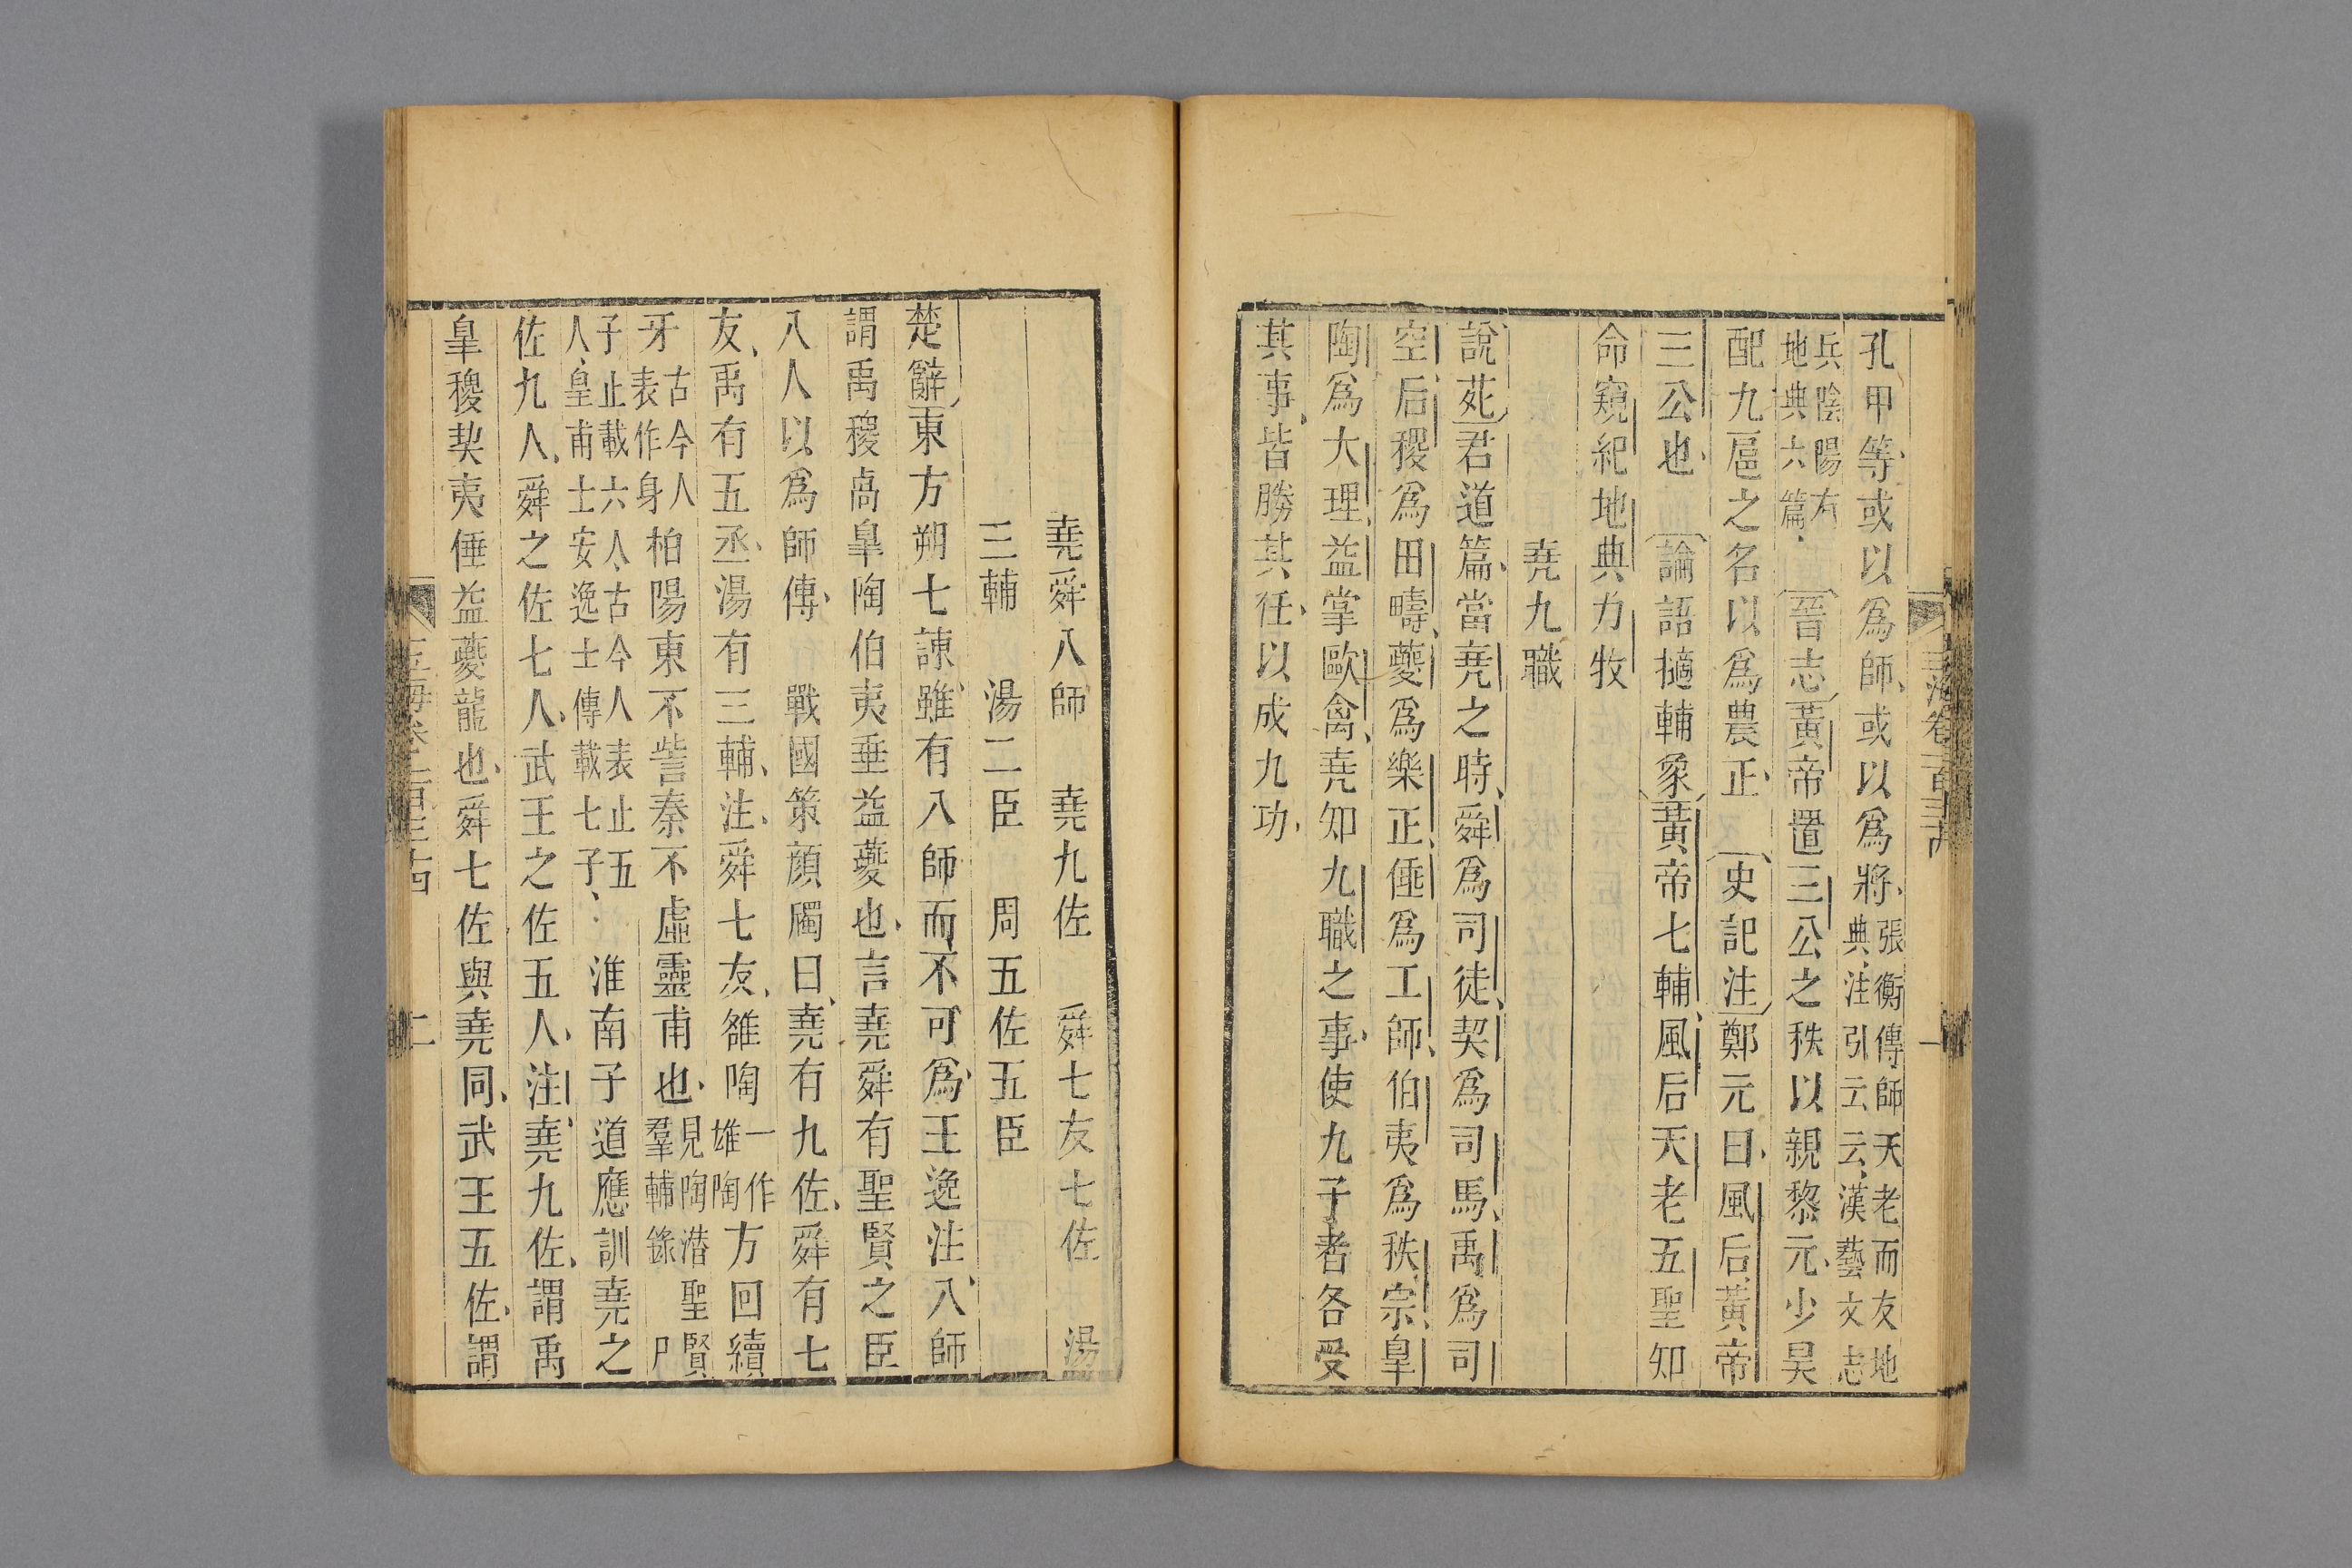 孔甲等或以爲師或以爲將張衡傳師天老而友地
典注引云云漢藝文志
兵陰陽有
地典六篇晉志黃帝置三公之秩以親黎元少昊
配九扈之名以爲農正史記注鄭元曰風后黃帝
三公也論語擿輔象黃帝七輔風后天老五聖知
命窺紀地典力牧
堯九職
說苑君道篇當堯之時舜爲司徒契爲司馬禹爲司
空后稷爲田疇夔爲樂正倕爲工師伯夷爲秩宗皐
陶爲大理益掌歐禽堯知九職之事使九子者各受
其事皆勝其任以成九功
堯舜八師 堯九佐 舜七友七佐 湯
三輔 湯二臣 周五佐五臣
楚辭東方朔七諫雖有八師而不可爲王逸注八師
謂禹稷卨皐陶伯夷垂益夔也言堯舜有聖賢之臣
八人以爲師傳 戰國策顔斶曰堯有九佐舜有七
友禹有五丞湯有三輔注舜七友雒陶一作
雄陶方回續
牙古今人
表作身柏陽東不訾秦不虛靈甫也見陶潛聖賢
羣輔錄 尸
子止載六人古今人表止五
人皇甫士安逸士傳載七子淮南子道應訓堯之
佐九人舜之佐七人武王之佐五人注堯九佐謂禹
皐稷契夷倕益夔龍也舜七佐與堯同武王五佐謂
玉海卷一百三十四 二